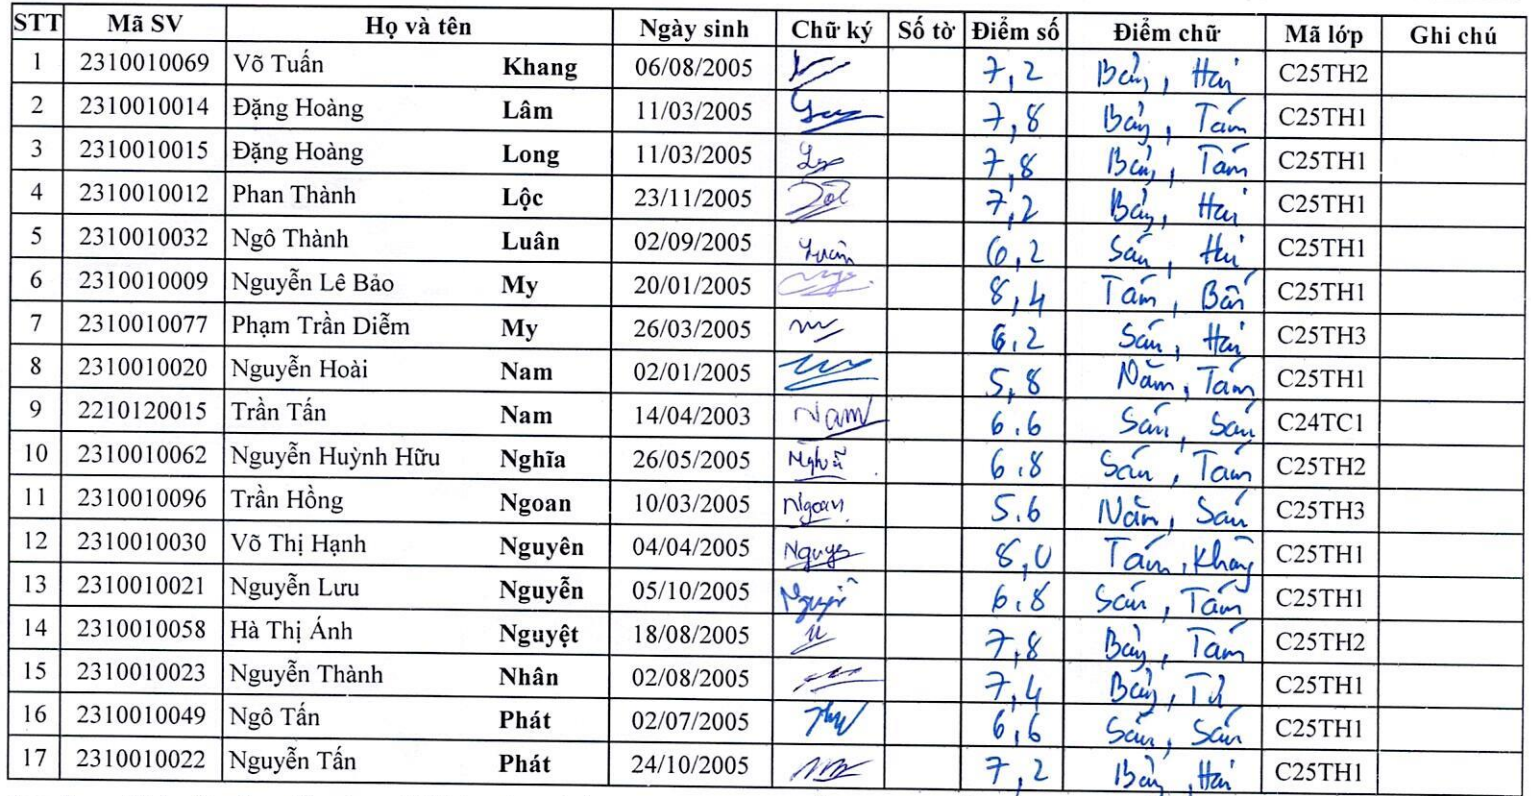 STT Mã SV Họ và tên Ngày sinh Chữ ký Số tờ Điểm số Điểm chữ Mã lớp Ghi chú
1 2310010069 Võ Tuấn Khang 06/08/2005 7,2 Bảy, Hai C25TH2
2 2310010014 Đặng Hoàng Lâm 11/03/2005 7,8 Bảy, Tám C25TH1
3 2310010015 Đặng Hoàng Long 11/03/2005 7,8 Bảy, Tám C25TH1
4 2310010012 Phan Thành Lộc 23/11/2005 7,2 Bảy, Hai C25TH1
5 2310010032 Ngô Thành Luân 02/09/2005 Luân 6,2 Sáu, Hai C25TH1
6 2310010009 Nguyễn Lê Bảo My 20/01/2005 8,4 Tám, Bốn C25TH1
7 2310010077 Phạm Trần Diễm My 26/03/2005 6,2 Sáu, Hai C25TH3
8 2310010020 Nguyễn Hoài Nam 02/01/2005 5,8 Năm, Tám C25TH1
9 2210120015 Trần Tấn Nam 14/04/2003 Nam 6.6 Sáu, Sáu C24TC1
10 2310010062 Nguyễn Huỳnh Hữu Nghĩa 26/05/2005 Nghĩa 6.8 Sáu, Tám C25TH2
11 2310010096 Trần Hồng Ngoan 10/03/2005 Ngoan 5.6 Năm, Sáu C25TH3
12 2310010030 Võ Thị Hạnh Nguyên 04/04/2005 8,0 Tám, Không C25TH1
13 2310010021 Nguyễn Lưu Nguyễn 05/10/2005 Nguyễn 6.8 Sáu, Tám C25TH1
14 2310010058 Hà Thị Ánh Nguyệt 18/08/2005 7,8 Bảy, Tám C25TH2
15 2310010023 Nguyễn Thành Nhân 02/08/2005 7,4 Bảy, Tư C25TH1
16 2310010049 Ngô Tấn Phát 02/07/2005 6,6 Sáu, Sáu C25TH1
17 2310010022 Nguyễn Tấn Phát 24/10/2005 7,2 Bảy, Hai C25TH1